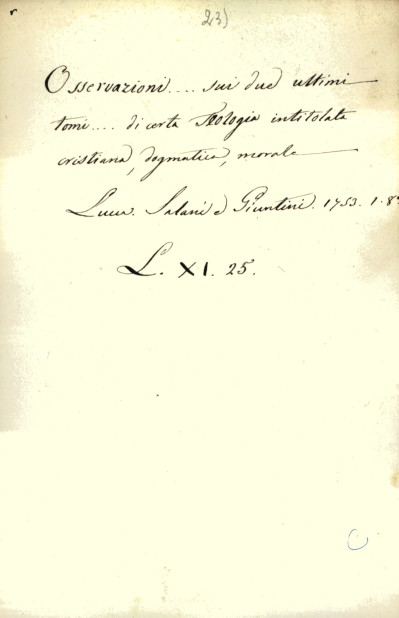 23)
Osservazioni.... sui due ultimi
tomi.... di certa Teologia intitolata
cristiana, dogmatica, morale
Lucca. Salani e Giuntini. 1753. 1. 8º
L. XI. 25.